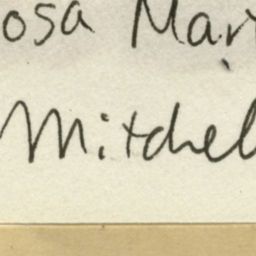 osa Mari
Mitchel